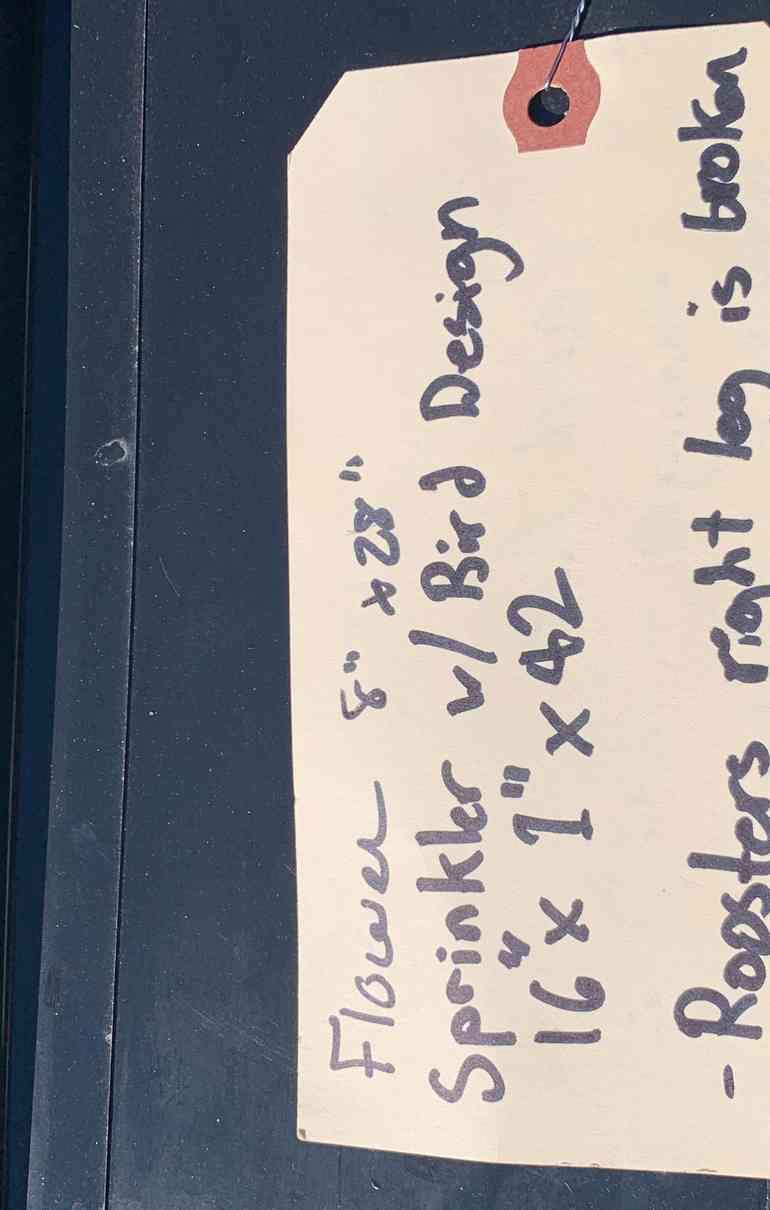 Flower 8" x 28"
Sprinkler w/ Bird Design
16" x 1" x 42
- Roosters right leg is broken